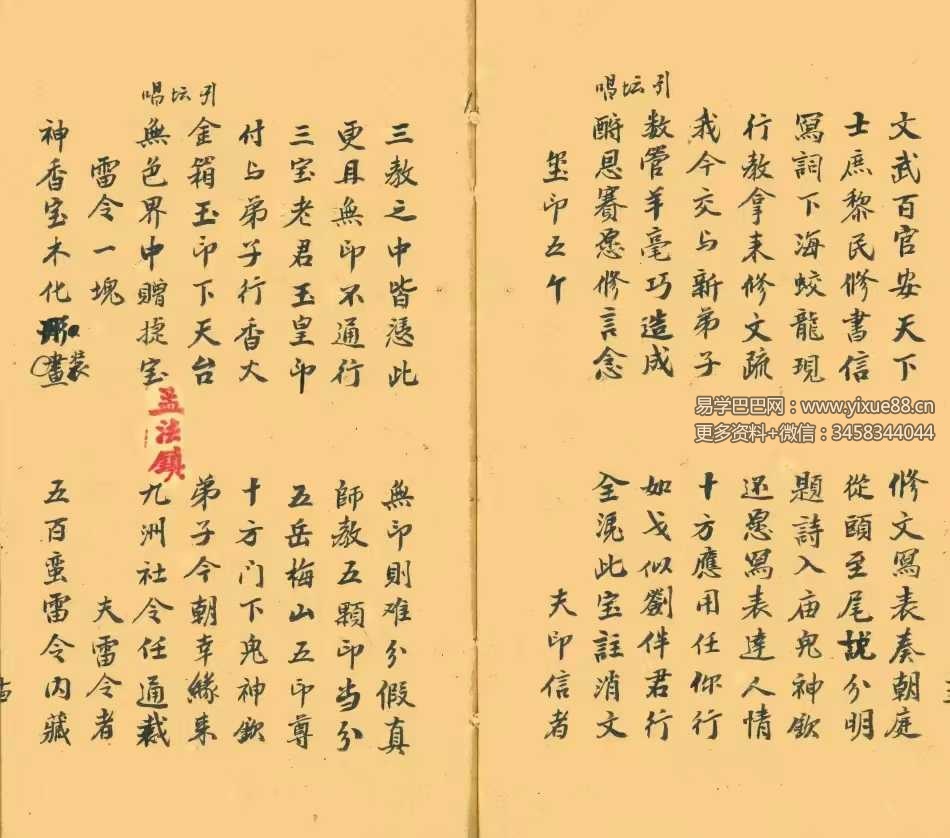 文武百官安天下　修文寫表奏朝庭
士庶黎民修書信　從頭至尾説分明
寫詞下海蛟龍現　題詩入庙鬼神欽
行教拿来修文疏　还愿寫表達人情
我今交与新弟子　十方應用任你行
数管羊毫巧造成　如戈似劉伴君行
引坛唱
酧恩賽愿修言念　全凴此宝註消文
玺印五个　夫印信者
三教之中皆憑此　無印則难分假真
更且無印不通行　師教五顆印当分
三宝老君玉皇印　五岳梅山五印尊
付与弟子行香火　十方门下鬼神欽
引坛唱
金箱玉印下天台　弟子今朝幸緣来
無色界中贈捷宝　九洲社令任通裁
雷令一塊　夫雷令者
神香宝木化彫画装　五百蛮雷令内藏
孟法鎮
易学巴巴网：www.yixue88.cn
更多资料+微信：3458344044